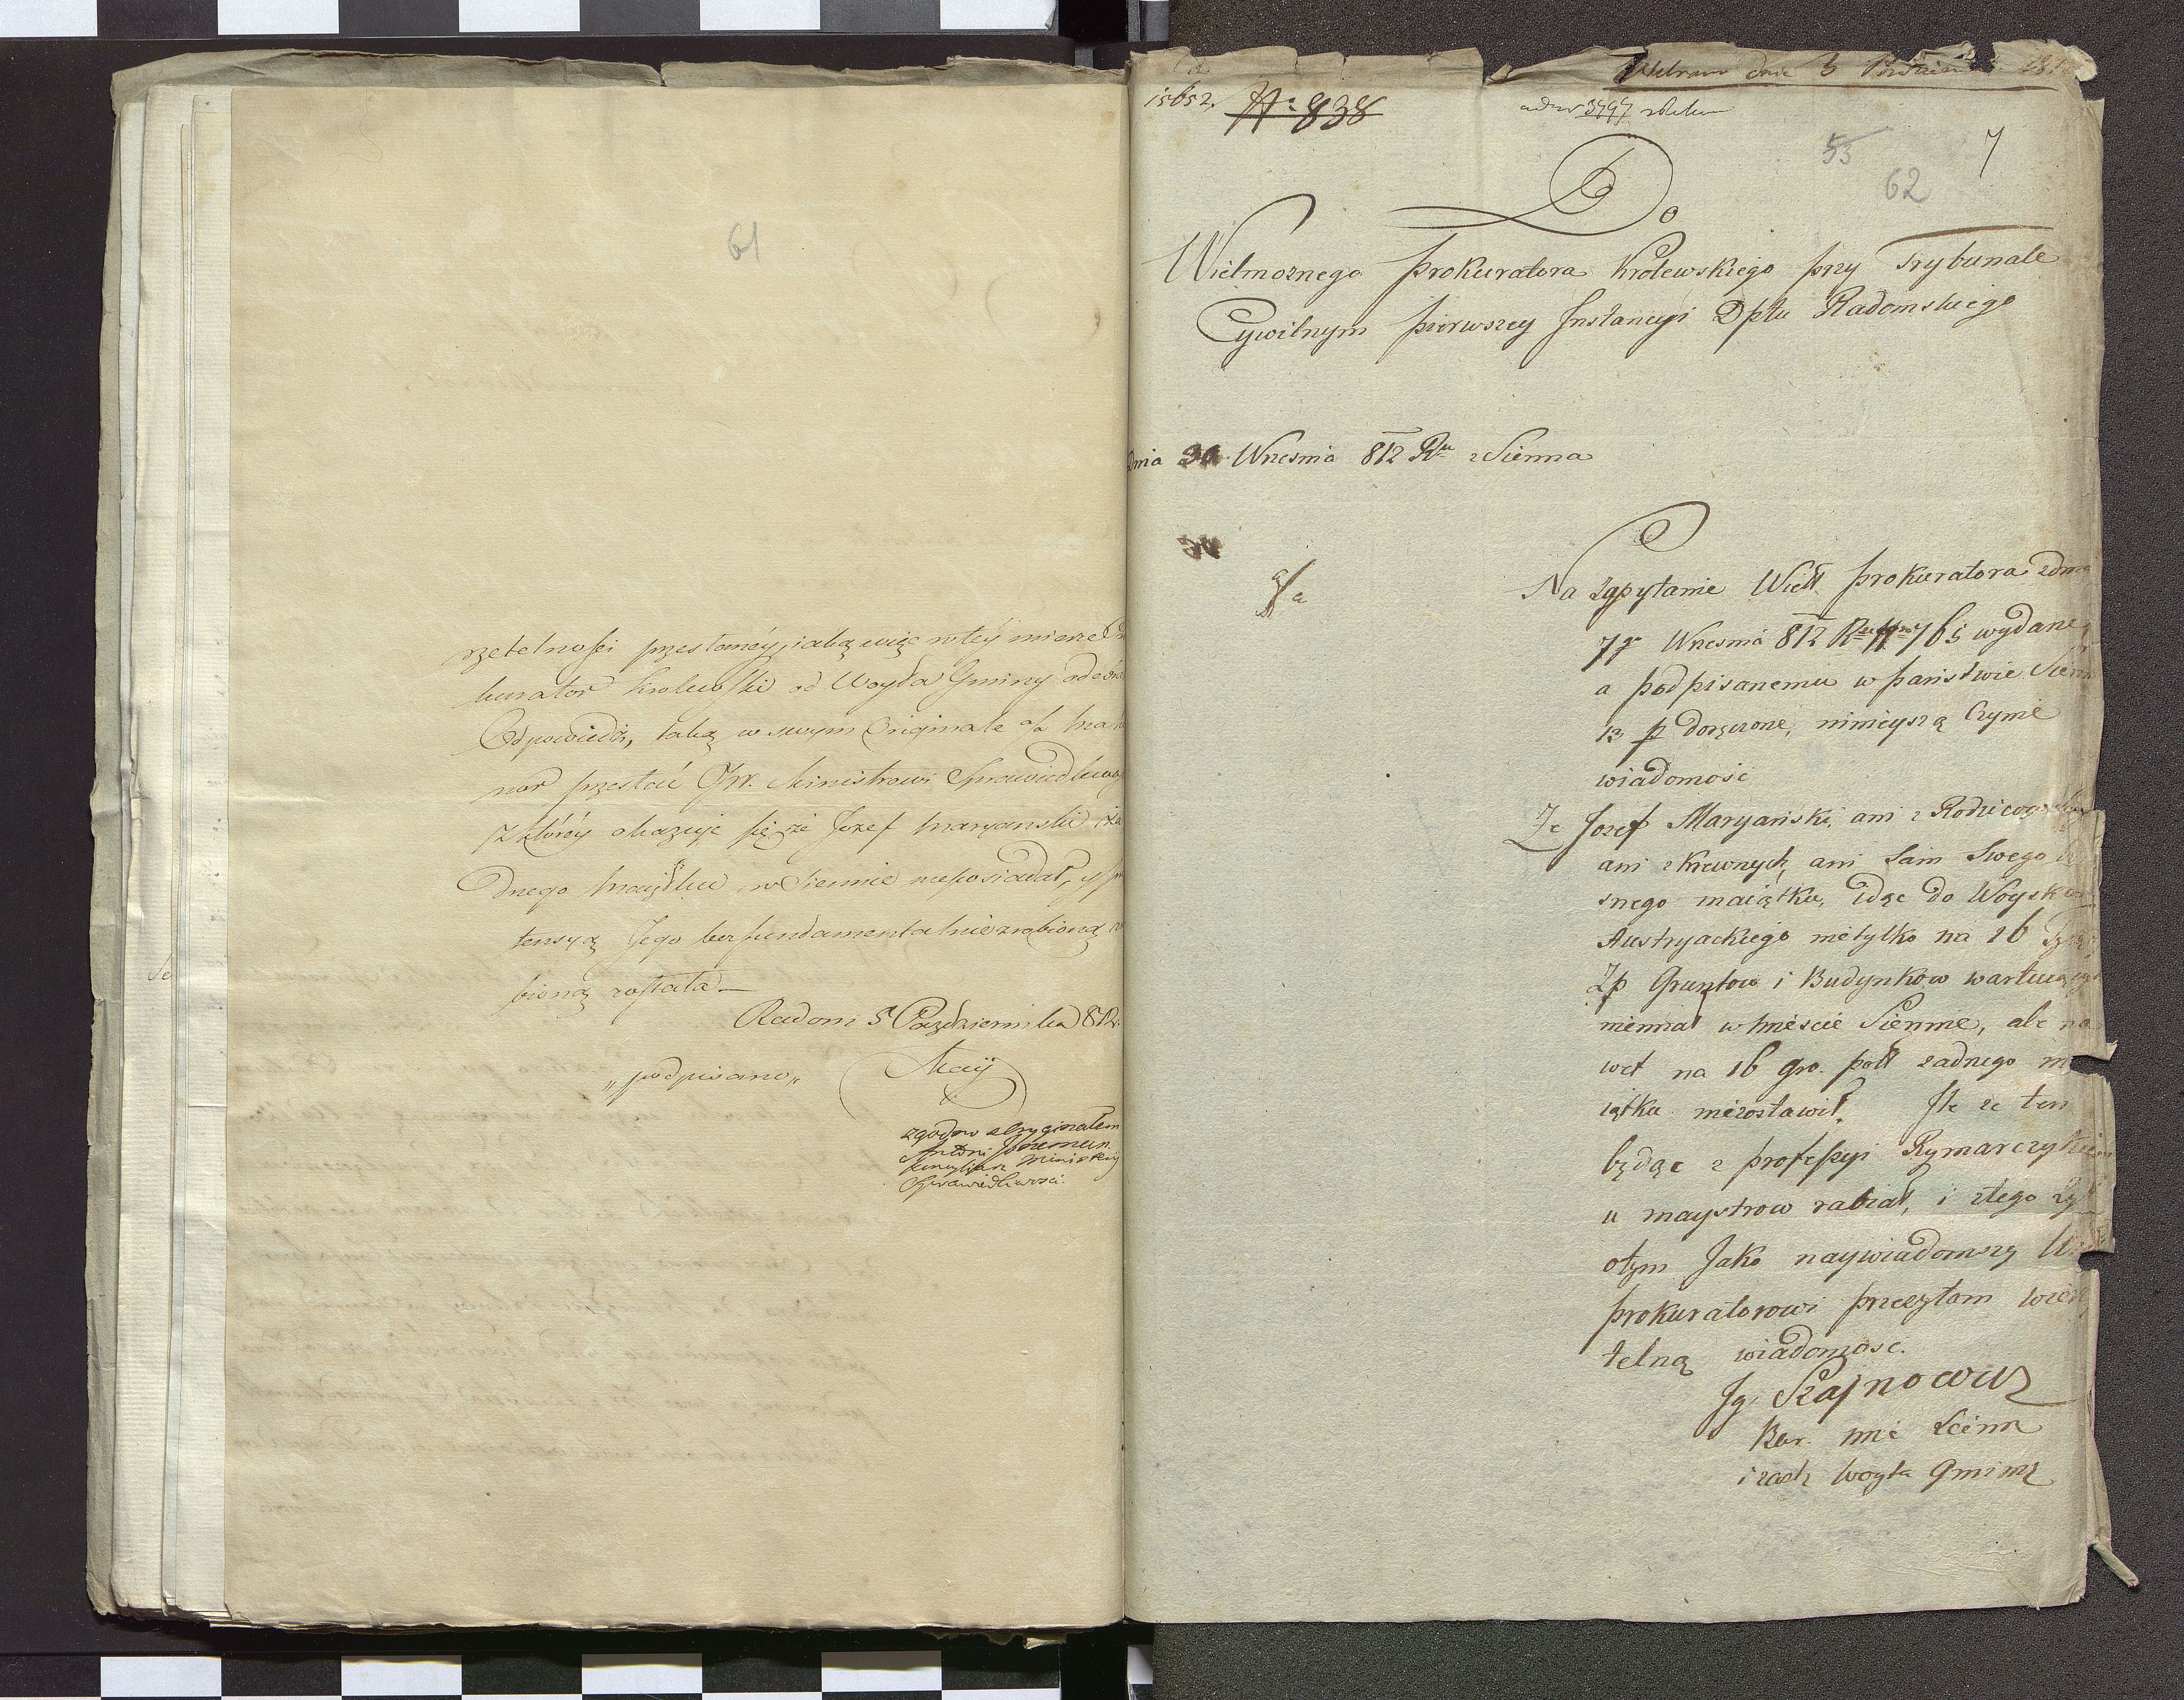 61
rzetelności przesłaney, iaką więc w tey mierze
kurator Krolewski od Woyta Gminy odebrał
Odpowiedź, taką w swym Originale a/. ma ho
nor przesłać JW. Ministrowi Sprawiedliwoś
z którey okazuje się że Jozef Maryanski ża
dnego Maiątku w Siennie nieposiadał, y
tensyą Jego bezfundamentalnie zrobioną
bioną została
Radom 5 Października 812.
„podpisano„ Maij
zgodno z Oryginałem
Antoni
Ministery
Sprawiedliwości.
Wdnie 3
15652, N: 838
ad nr 3997
53
62
7
Do
Wielmoznego Prokuratora Krolewskiego przy Trybunale
Cywilnym pierwszey Instancyi Dptu Radomskiego
Dnia 30 Wrzesnia 812 Ru z Sienna
a/a
Na Zapytanie Wiel Prokuratora zdnia
7go Wrzesnia 812 Ru N 765 wydane,
a podpisanemu w państwie Sien
13 p doręczone, ninieyszą Czynie
wiadomość
Ze Jozef Maryański, ani z Rodzicow
ani z krewnych, ani Sam Swego
snego maiątku, Idąc do Woyska
Austryackiego nietylko na 16
Zp Gruntow i Budynkow wartuiących
niemiał w Mieście Siennie, ale na
wet na 16 gro. poll zadnego m
iątku niezostawił. Jle ze ten
będąc z professyi Rymarczykiem
u maystrow rabiał, i ztego żył
otym Jako naywiadomszy
Prokuratorowi przesyłam wierz
telną wiadomosc.
Jg Szajnowicz
Bur. mie Scienn
i zastę Woyta Gminy